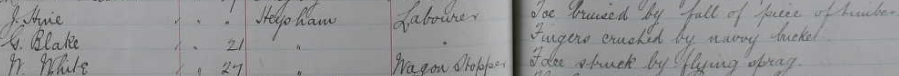 J. Hine " " " Heysham Labourer Toe bruised by fall of piece of timber
G. Blake " " 21 " " Fingers crushed by navvy bucket.
W. White " " 27 " Wagon Stopper Face struck by flying sprag.